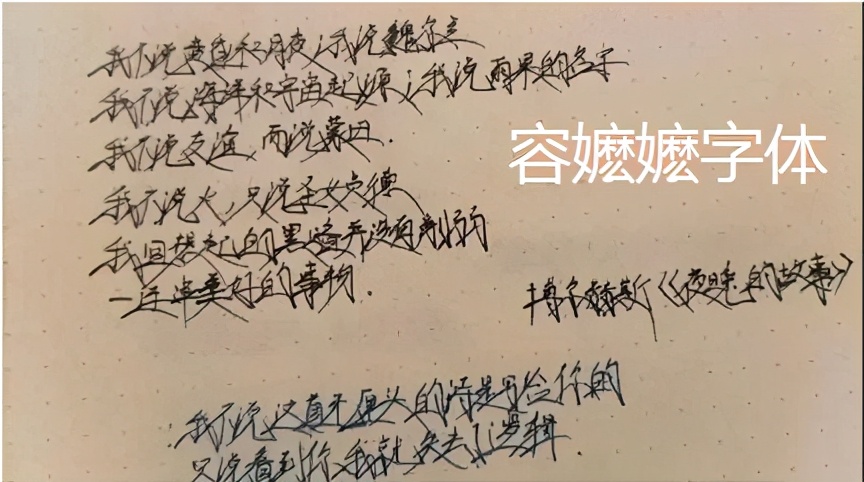 我不说黄昏和月夜;我说魏尔兰
我不说海洋和宇宙起源;我说雨果的名字
容嬷嬷字体
我不说友谊,而说蒙田.
我不说火,只说圣女贞德
我回想起的黑暗并没有削弱
一连串美好的事物.
博尔赫斯《夜晚的故事》
我不说这直不愣头的诗是写给你的
只说看到你我就失去了逻辑.